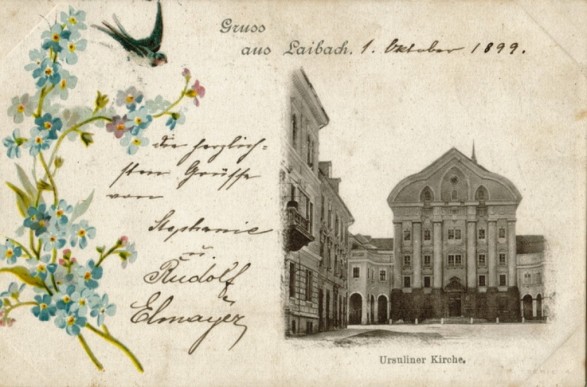 Gruss
aus Laibach. 1. Oktober 1899.
die herzlich=
sten Grüsse
von
Stephanie
u
Rudolf
Elmayer
Ursuliner Kirche.